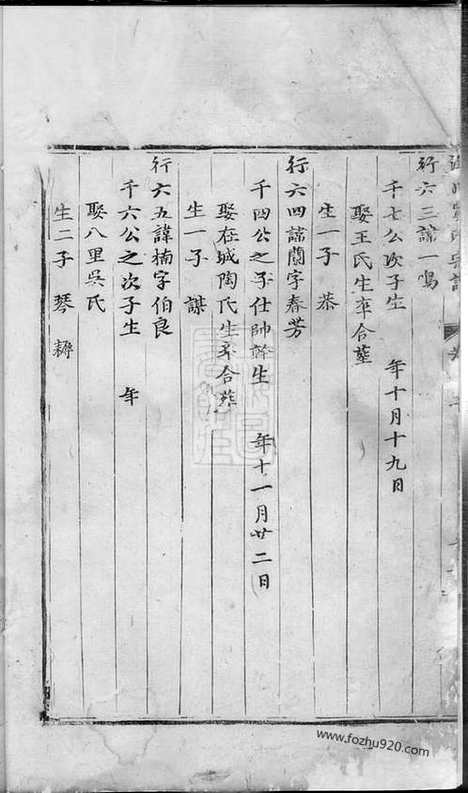 行六三諱一鳴
千七公次子生 年十月十九日
娶王氏生卒合墓
生一子 恭
行六四諱蘭字春芳
千四公之子仕帥幹生 年十一月廿二日
娶在城陶氏生卒合葬
生一子 謀
行六五諱楠字伯良
千六公之次子生 年
娶八里吳氏
生二子 琴 耨
www.fozhu920.com